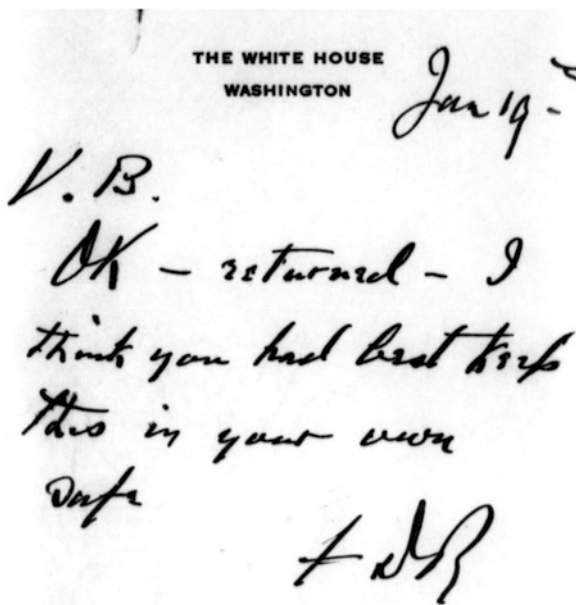 THE WHITE HOUSE
WASHINGTON
Jan 19 -
V. B.
OK – returned – I
think you had best keep
this in your own
safe
FDR